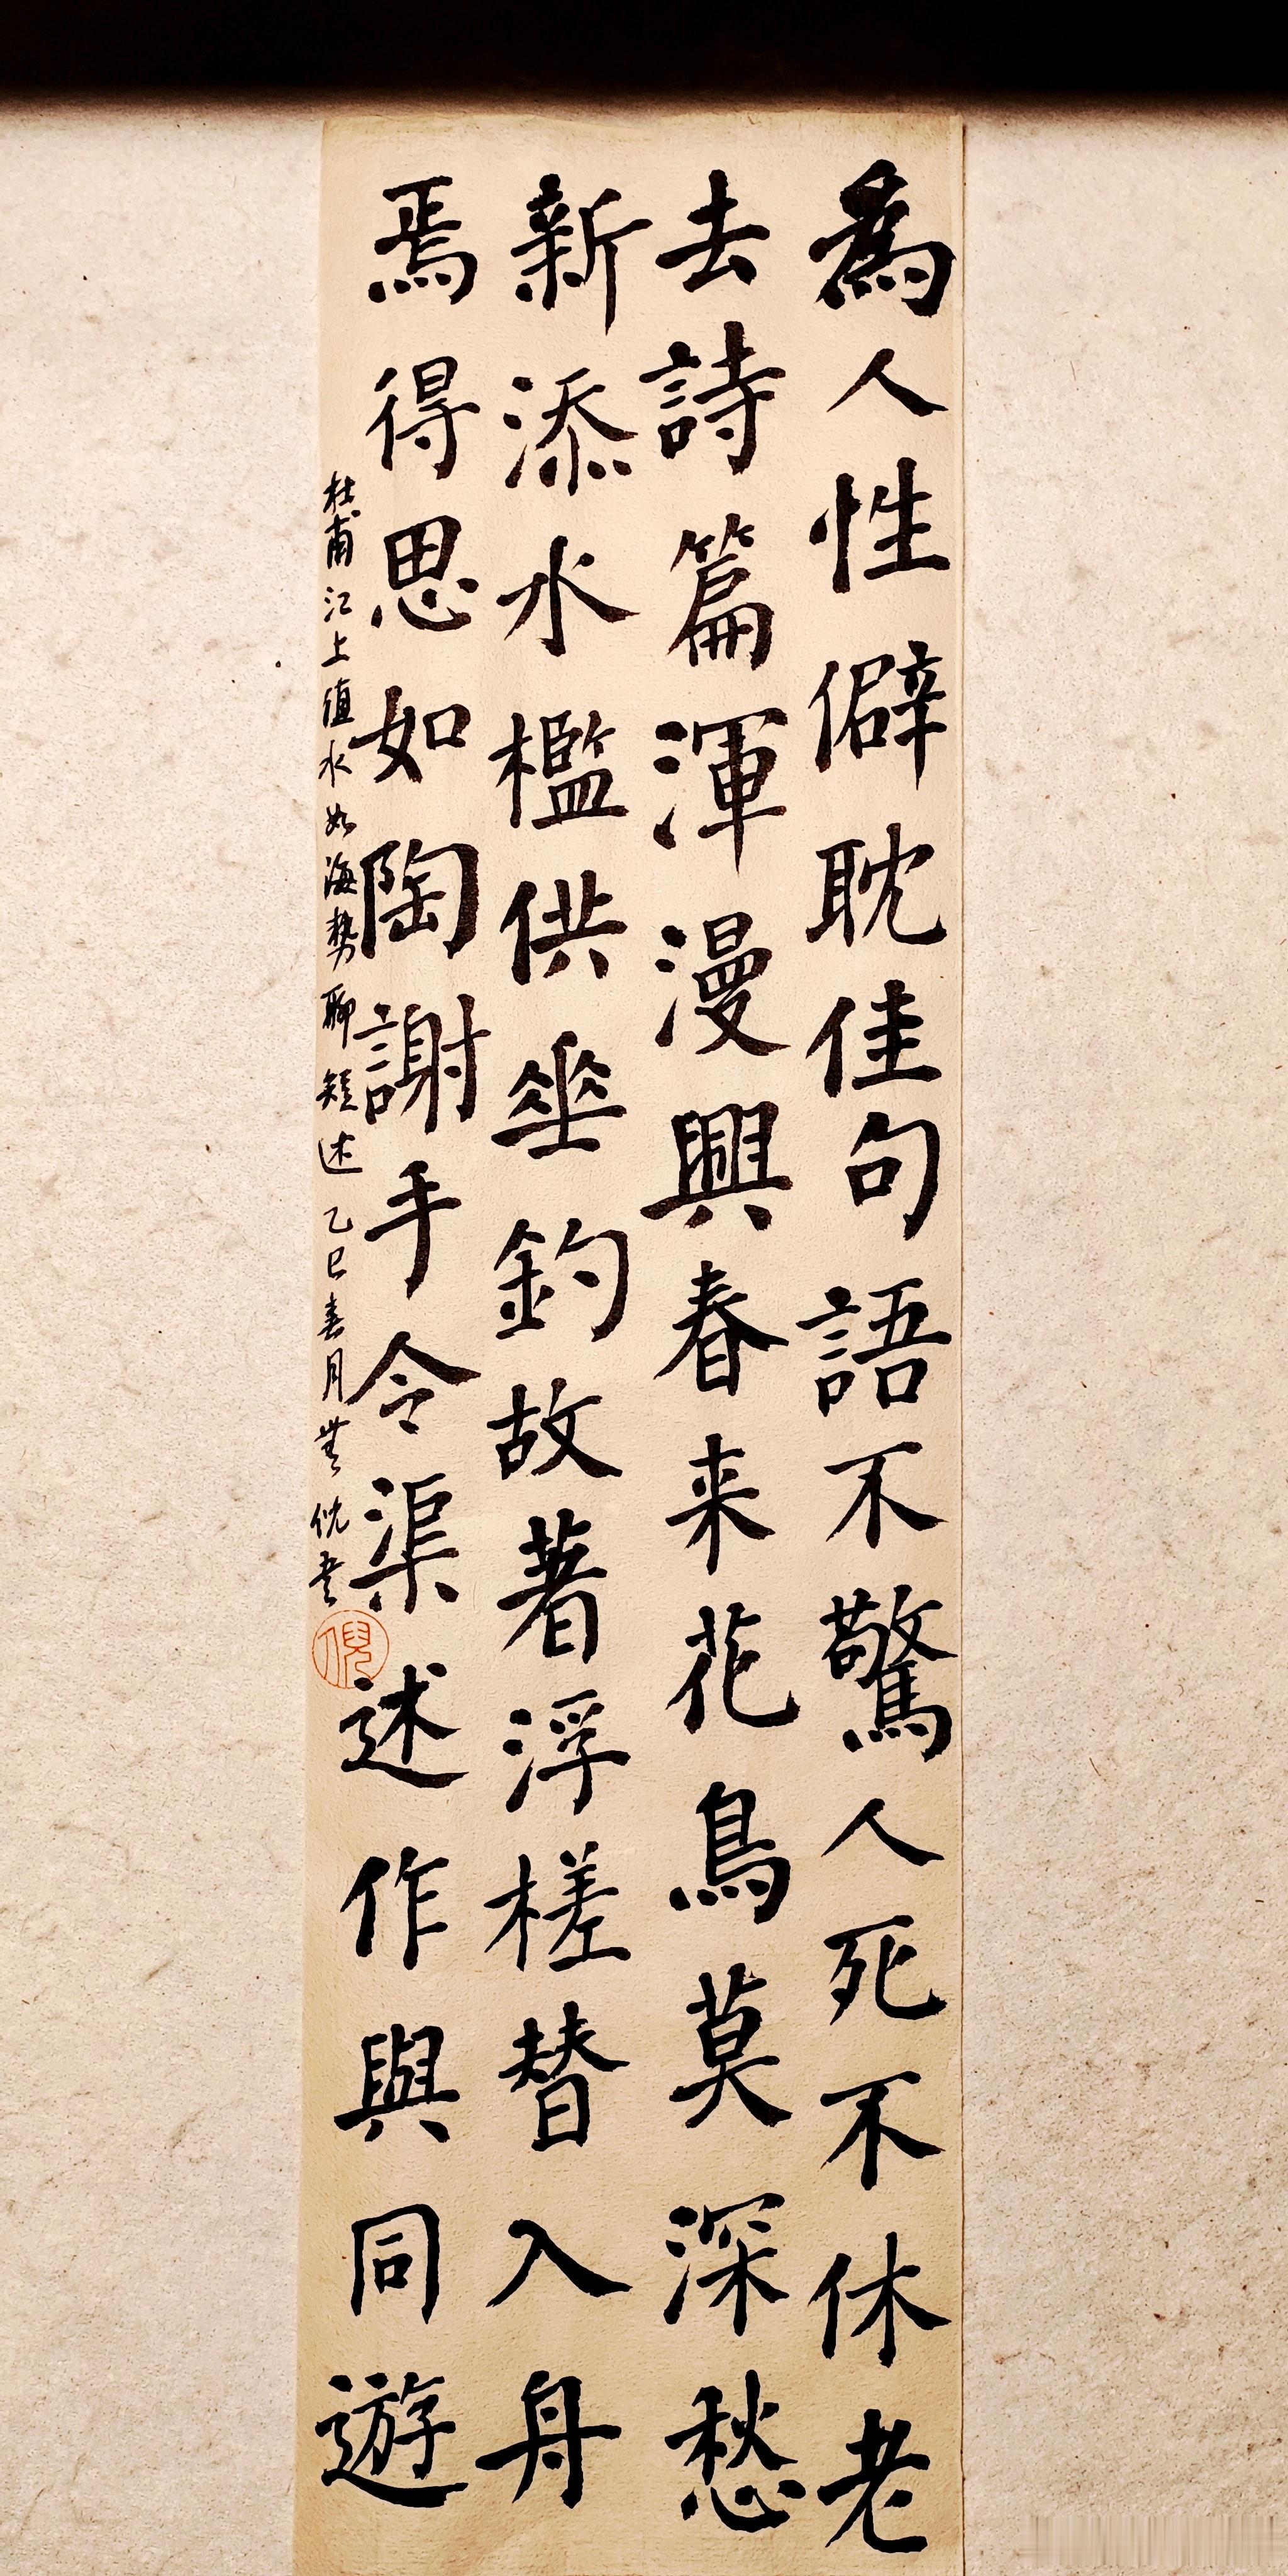 為人性僻耽佳句語不驚人死不休老
去詩篇渾漫興春来花鳥莫深愁
新添水檻供垂釣故著浮槎替入舟
焉得思如陶謝手令渠述作與同遊
杜甫江上值水如海勢聊短述乙巳春月
倪